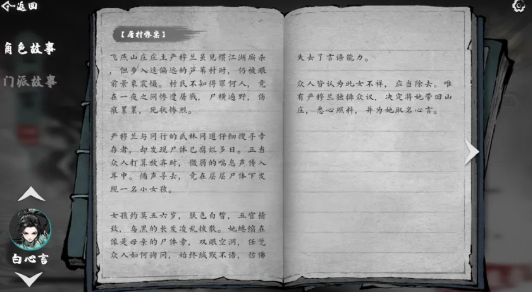 返回
角色故事
门派故事
白心言
【屠村惨案】
飞燕山庄庄主严穆兰虽见惯江湖厮杀
，但步入这偏远的芦苇村时，仍被眼
前景象震撼。村民不知得罪何人，竟
在一夜之间惨遭屠戮，尸横遍野，伤
痕累累，死状惨烈。
严穆兰与同行的武林同道仔细搜寻幸
存者，却发现尸体已腐烂多日。正当
众人打算放弃时，微弱的喘息声传入
耳中。循声寻去，竟在层层尸体下发
现一名小女孩。
女孩约莫五六岁，肤色白皙，五官精
致，乌黑的长发凌乱披散。她蜷缩在
像是母亲的尸体旁，双眼空洞，任凭
众人如何询问，始终缄默不语，仿佛
失去了言语能力。
众人皆认为此女不祥，应当除去。唯
有严穆兰独排众议，决定将她带回山
庄，悉心照料，并为她取名心言。